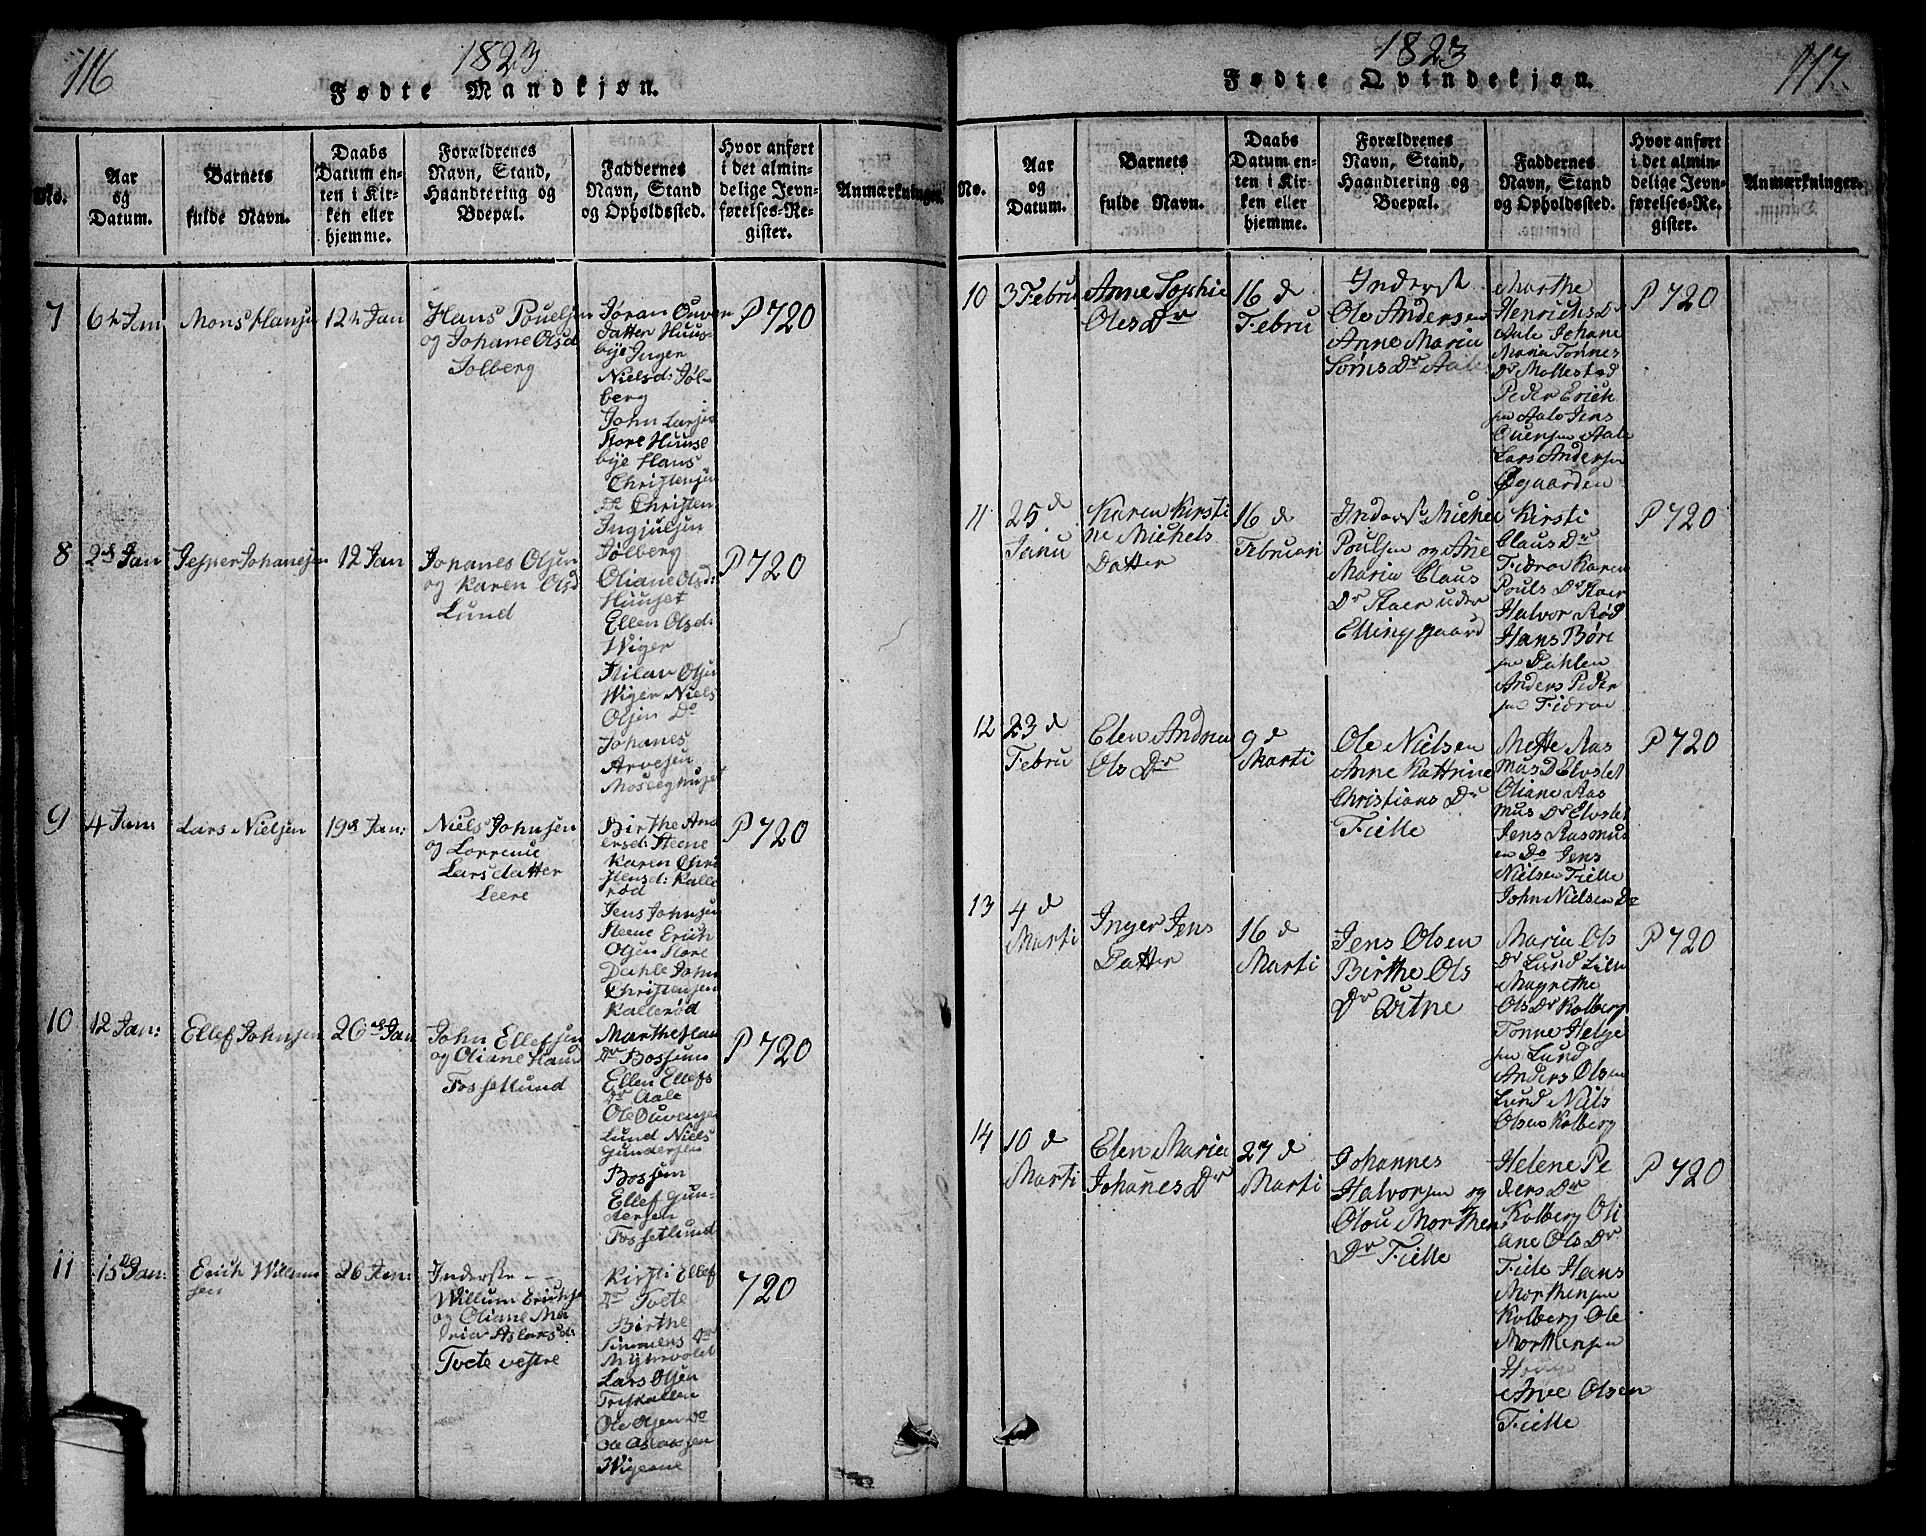 116
1823
Fødte Mandkjøn.
No.
Aar
og
Datum.
Barnets
fulde Navn.
Daabs
Datum en-
ten i Kir-
ken eller
hjemme.
Forældrenes
Navn, Stand,
Haandtering og
Boepæl.
Faddernes
Navn, Stand
og Opholdssted.
Hvor anført
i det almin-
delige Jevn-
førelses-Re-
gister.
Anmærkninger.
7
6te Jan
Mons Hansen
12te Jan
Hans Pouelsen
og Johane Olsd
Solberg
Jøran Ouven
datter Huus-
bye Inger
Nielsd: Jøl-
berg
John Larsen
Store Huuse
bye Hans
Christensen
Do Christen
Ingjulsen
Jølberg
P 720
8
2d Jan
Jesper Johanesen
12 Jan
Johanes Olsen
og Karen Olsd
Lund
Oliane Olsd:
Huuset
Ellen Olsd:
Wiger
Milan Olsen
Wiger Niels
Olsen Do
Johanes
Arvesen
Moseeghuset
P 720
9
4 Jan
Lars Nielsen
19d Jan:
Niels Johnsen
og Lorrene
Larsdatter
Leere
Birthe And
ersd: Steene
Karen Chri
stensd: Kalle
rød
Jens Johnsen
Steene Erich
Olsen Store
Dahle John
Christensen
Kallerød
P 720
10
12 Jan:
Ellef Johnsen
26de Jan
John Ellefsen
og Oliane Hans
Fossetlund
Marthe Han
Dr Bossum
Ellen Ellefs
Dr Aale
Ole Ouvensen
Lund Niels
Gundersen
Bossum
Ellef Gun-
dersen
Fossetlund
P 720
11
15d Jan:
Erich Willum
sen
26 Jan:
Inderste - -
Willum Erichs
og Oliane Ma
dria Aslaksd:
Tvete vestre
Kirsti Ellef
Dr Tvete
Birthe
Simmens Dr
Myhrvolet
Lars Olsen
Friskallen
Ole Olsen Do
Ole Aslaksen
Wigerne
720
1823
117.
Fødte Qvindekjøn.
No.
Aar
og
Datum.
Barnets
fulde Navn.
Daabs
Datum en-
ten i Kir-
ken eller
hjemme.
Forældrenes
Navn, Stand,
Haandtering og
Boepæl.
Faddernes
Navn, Stand
og Opholdssted.
Hvor anført
i det almin-
delige Jevn-
førelses-Re-
gister.
Anmærkninger.
10
3 Febru
Anne Sophie
Oles Dr
16 d
Febru
Inderst
Ole Andersen
Anne Maria
Sørns Dr Aale
Marthe
Henrichs Dr
Aale Jehane
Maria Tønnes
Dr Mollestad
Peder Erich
sen Aale Jens
Ouensen Aale
Lars Andersen
Øgaarden
P 720
11
25 d
Janu
Karen Kirsti
ne Michels
Datter
16 d
Februari
Inderst Michel
Poulsen og Ane
Maria Claus
Dr Staer under
Ellinggaard
Kirsti
Claus Dr
Fideroe Karen
Pouls Dr Staer
Halvor Rød
Hans Børe
sen Dahlen
Anders Peder
sen Fideroe
P 720
12
23 d
Febru
Elen Andrea
Ols Dr
9 d
Marti
Ole Nielsen
Anne Kattrine
Christians Dr
Fielle
Mette Ras
mus D Elvslet
Oliane Ras
mus Dr Elvslet
Jens Rasmus
en Do Jens
Nielsen Fielle
John Nielsen Do
P 720
13
4 d
Marti
Inger Jens
Datter
16 d
Marti
Jens Olsen
Birthe Ols
Dr Qvitne
Maria Ols
Dr Lund Lille
Magrethe
Ols Dr Kolberg
Tonne Helge
sen Lund
Anders Olsen
Lund Niels
Olsen Kolberg
P 720
14
10 d
Marti
Elen Maria
Johanes Dr
27 d
Marti
Johannes
Halvorsen og
Olou Morthen
Dr Fielle
Helene Pe
ders Dr
Kolberg Oli
ane Ols Dr
Fielle Hans
Morthensen
Kolberg Ole
Morthensen
Arve Olsen
Fielle
P 720